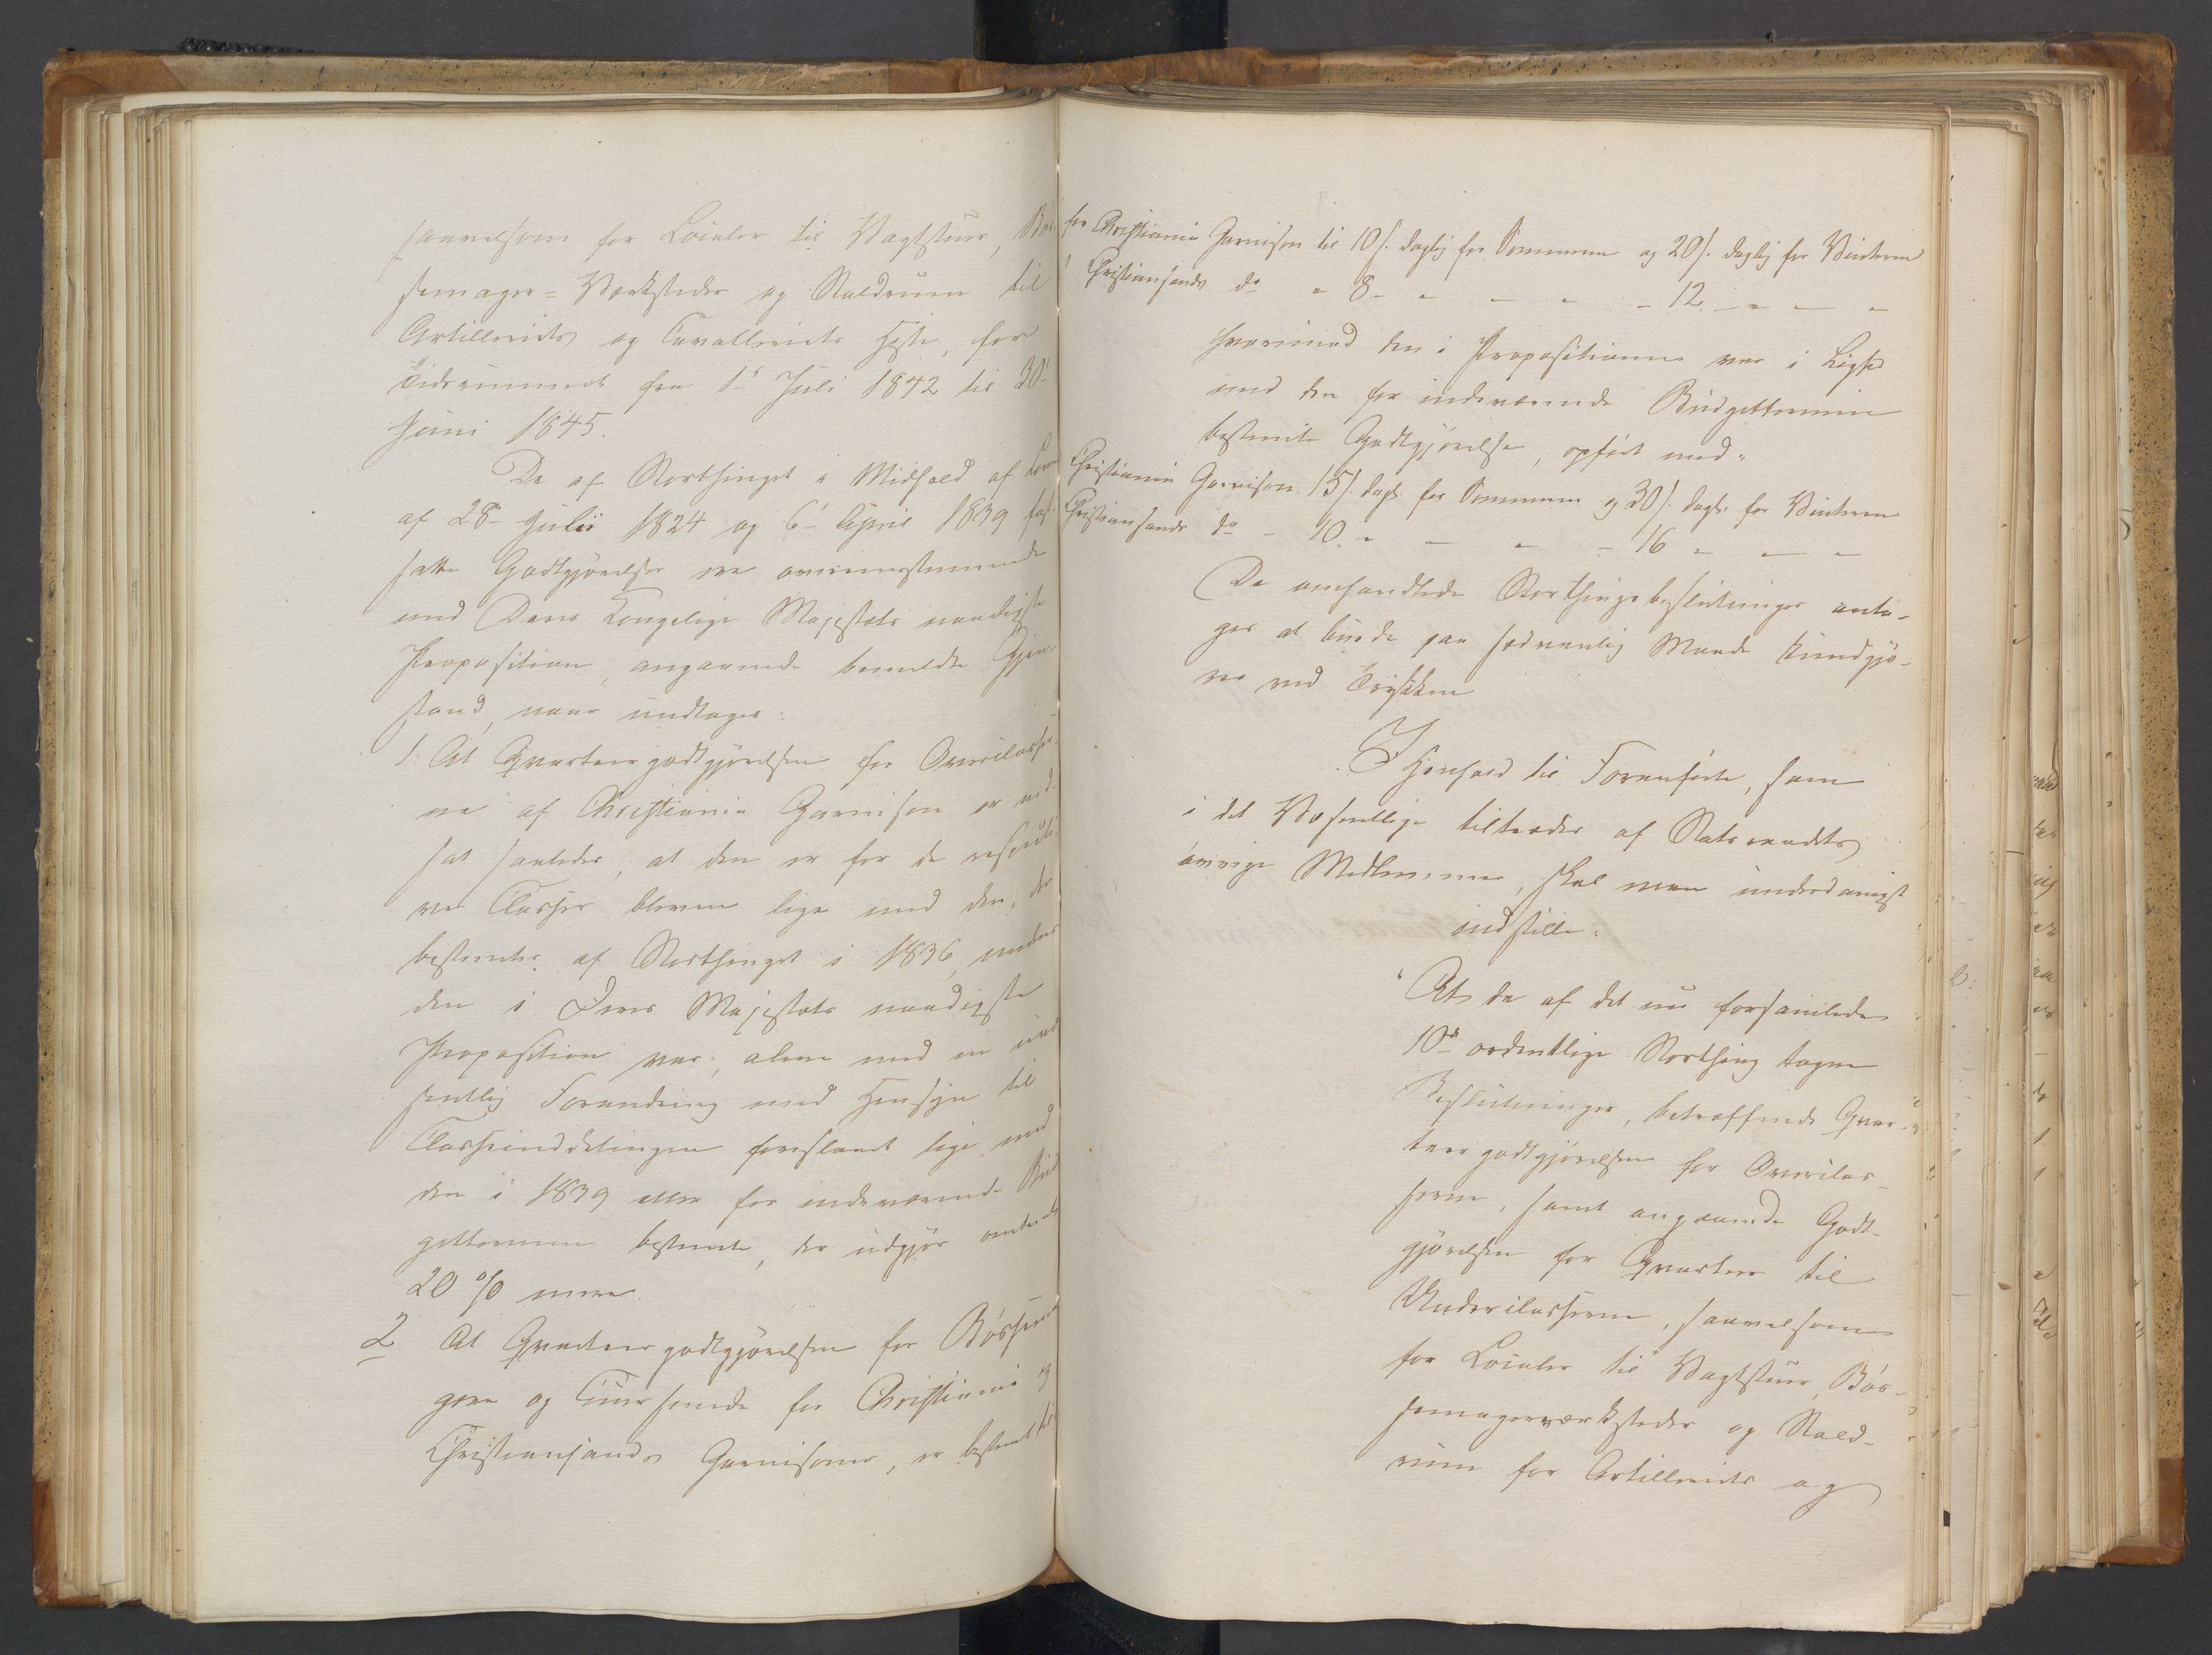 saavelsom for Localer til Vagtstuer, Bøs-
semager-Værksteder og Staldrum til
Artilleriets og Cavalleriets Heste, for
Tidsrummet fra 1ste Juli 1842 til 30te
Juni 1845.
De af Storthinget i Medhold af Love
af 28de Julii 1824 og 6te April 1839 fast-
satte Godtgjørelser ere overensstemmende
med Deres Kongelige Majestæts naadigste
Proposition, angaaende bemeldte Gjen-
stand, naar undtages:
1. At Qvarteergodtgjørelsen for Overclasser-
ne af Christiania Garnison er ned-
sat saaledes, at den er for de respecti-
ve Classer bleven lige med den, der
bestemtes af Storthinget i 1836, medens
den i Deres Majestæts naadigste
Proposition var, alene med en uvæ-
sentlig Forandring med Hensyn til
Classeinddelingen foreslaaet lige med
den i 1839 eller for indeværende Bud-
gettermin bestemte, der udgjør omtrent
20 % mere.
2 At Qvarteergodtgjørelsen for Bøssema-
gere og Cuursmede for Christiania og
Christiansands Garnisoner, er bestemt til
for Christiania Garnison til 10 s. daglig for Sommeren og 20 s. daglig for Vinteren
Christiansands do " 8 - " - " - 12 - " - "
hvorimod den i Propositionen var i Lighed
med den for indeværende Budgettermin
bestemte Godtgjørelse, opført med
Christiania Garnison 15 s. dagl. for Sommeren og 30 s. dagl. for Vinteren
Christiansands do - 10 " - " - 16 " - "
De omhandlede Storthingsbeslutninger anta-
ges at burde paa sædvanlig Maade kundgjø-
res ved Trykken
I Henhold til Foranførte, som
i det Væsentlige tiltrædes af Statsraadets
øvrige Medlemmer, skal man underdanigst
indstille:
"At de af det nu forsamlede
10de ordentlige Storthing tagne
Beslutninger, betræffende Qvar-
teergodtgjørelsen for Overclas-
serne, samt angaaende Godt-
gjørelsen for Qvarteer til
Underclasserne, saavelsom
for Localer til Vagtstuer, Bøs-
semagerværksteder og Stald-
rum for Artilleriets og